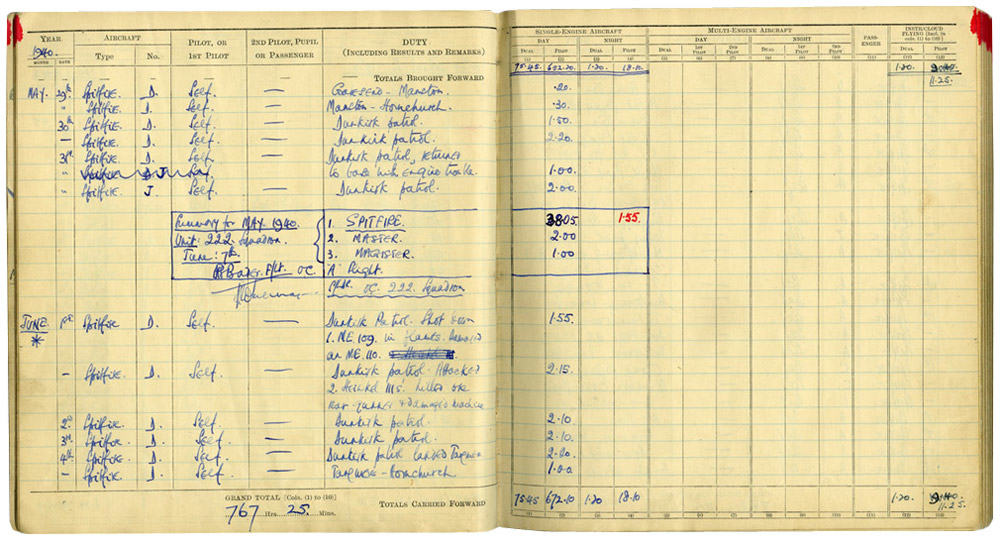 YEAR AIRCRAFT PILOT, OR 1ST PILOT 2ND PILOT, PUPIL OR PASSENGER DUTY (INCLUDING RESULTS AND REMARKS) SINGLE-ENGINE AIRCRAFT MULTI-ENGINE AIRCRAFT PASS-ENGER INSTR/CLOUD FLYING [Incl. in cols. (1) to (10)]
1940. Type No. DAY NIGHT DAY NIGHT
MONTH DATE DUAL PILOT DUAL PILOT DUAL 1ST PILOT 2ND PILOT DUAL 1ST PILOT 2ND PILOT DUAL PILOT
(1) (2) (3) (4) (5) (6) (7) (8) (9) (10) (11) (12) (13)
— — — — — — — TOTALS BROUGHT FORWARD 75.45 652.20 1.20 18.10 1.20
11.25.
MAY. 29th Spitfire D. Self — — Manston. .20
" Spitfire. D. Self. — Manston - Hornchurch. .30
30th Spitfire D. Self — Dunkirk patrol. 1.50
— Spitfire. D. Self. — Dunkirk patrol. 2.20
31st Spitfire D. Self. — Dunkirk patrol, returned
" J Self to base with engine trouble. 1.00
" Spitfire. J. Self. — Dunkirk patrol. 2.00
Summary for MAY. 1940. 1. SPITFIRE. 38.05. 1.55.
Unit: 222 Squadron. 2. MASTER. 2.00
June: 7th. 3. MAGISTER. 1.00
F/Lt. O.C. 'A' Flight.
O.C. 222. Squadron
JUNE. 1st Spitfire D. Self. — Dunkirk Patrol. Shot down 1.55
* 1. ME 109. in flames. Damaged
an ME. 110.
— Spitfire. D. Self. — Dunkirk patrol. Attacked 2.15.
2. Heinkel killed one
rear gunner & damaged machine
2nd Spitfire. D. Self. — Dunkirk patrol. 2.10
3rd Spitfire. D. Self. — Dunkirk patrol. 2.10.
4th Spitfire. D. Self. — Dunkirk patrol landed
— Spitfire. D. Self — - Hornchurch 1.00
GRAND TOTAL [Cols. (1) to (10)] TOTALS CARRIED FORWARD 75.45 672.10 1.20 18.10 1.20.
767 Hrs. 25 Mins. 11.25
(1) (2) (3) (4) (5) (6) (7) (8) (9) (10) (11) (12) (13)